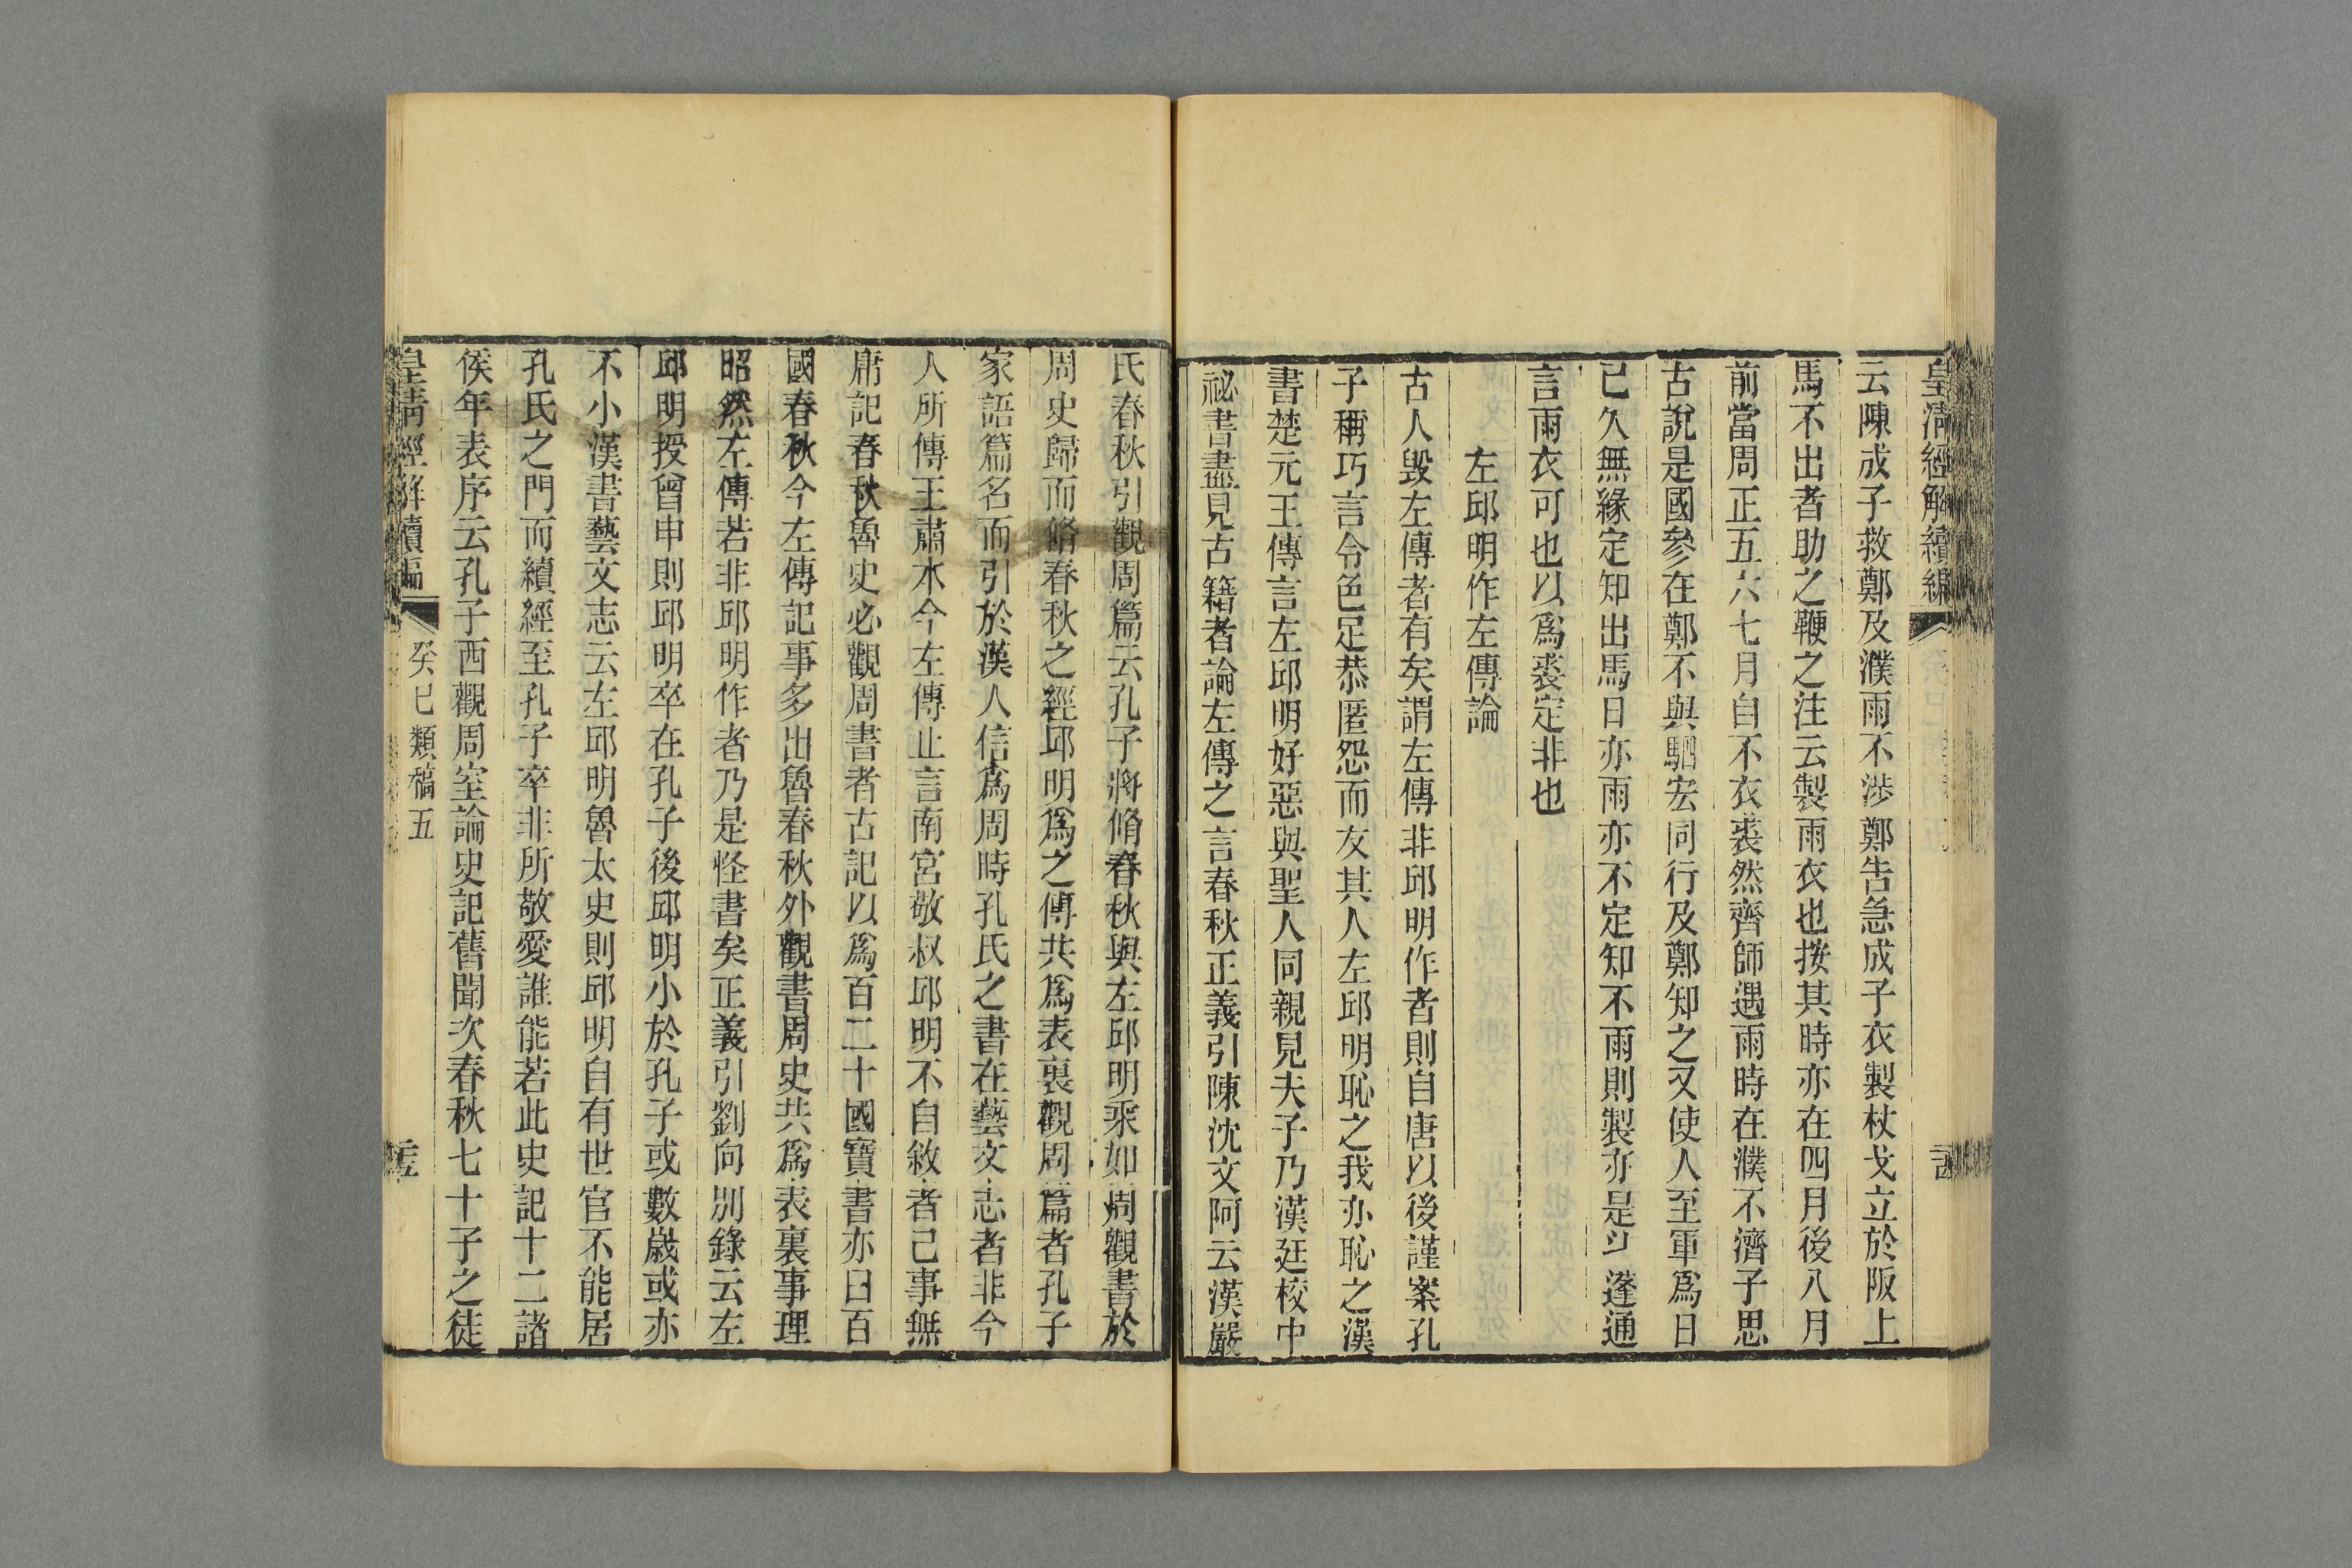 皇清經解續編
云陳成子救鄭及濮雨不涉鄭告急成子衣製杖戈立於阪上
馬不出者助之鞭之注云製雨衣也按其時亦在四月後八月
前當周正五六七月自不衣裘然齊師遇雨時在濮不濟子思
古說是國參在鄭不與駟宏同行及鄭知之又使人至軍爲日
已久無緣定知出馬日亦雨亦不定知不雨則製亦是 蓬通
言雨衣可也以爲裘定非也
左邱明作左傳論
古人毀左傳者有矣謂左傳非邱明作者則自唐以後謹案孔
子稱巧言令色足恭匿怨而友其人左邱明恥之我亦恥之漢
書楚元王傳言左邱明好惡與聖人同親見夫子乃漢廷校中
祕書盡見古籍者論左傳之言春秋正義引陳沈文阿云漢嚴
氏春秋引觀周篇云孔子將脩春秋與左邱明乘如周觀書於
周史歸而脩春秋之經邱明爲之傳共爲表裏觀周篇者孔子
家語篇名而引於漢人信爲周時孔氏之書在藝文志者非今
人所傳王肅本今左傳止言南宮敬叔邱明不自敘者己事無
庸記春秋魯史必觀周書者古記以爲百二十國寶書亦曰百
國春秋今左傳記事多出魯春秋外觀書周史共爲表裏事理
昭然左傳若非邱明作者乃是怪書矣正義引劉向別錄云左
邱明授曾申則邱明卒在孔子後邱明小於孔子或數歲或亦
不小漢書藝文志云左邱明魯太史則邱明自有世官不能居
孔氏之門而續經至孔子卒非所敬愛誰能若此史記十二諸
侯年表序云孔子西觀周室論史記舊聞次春秋七十子之徒
皇清經解續編 癸巳類稿五